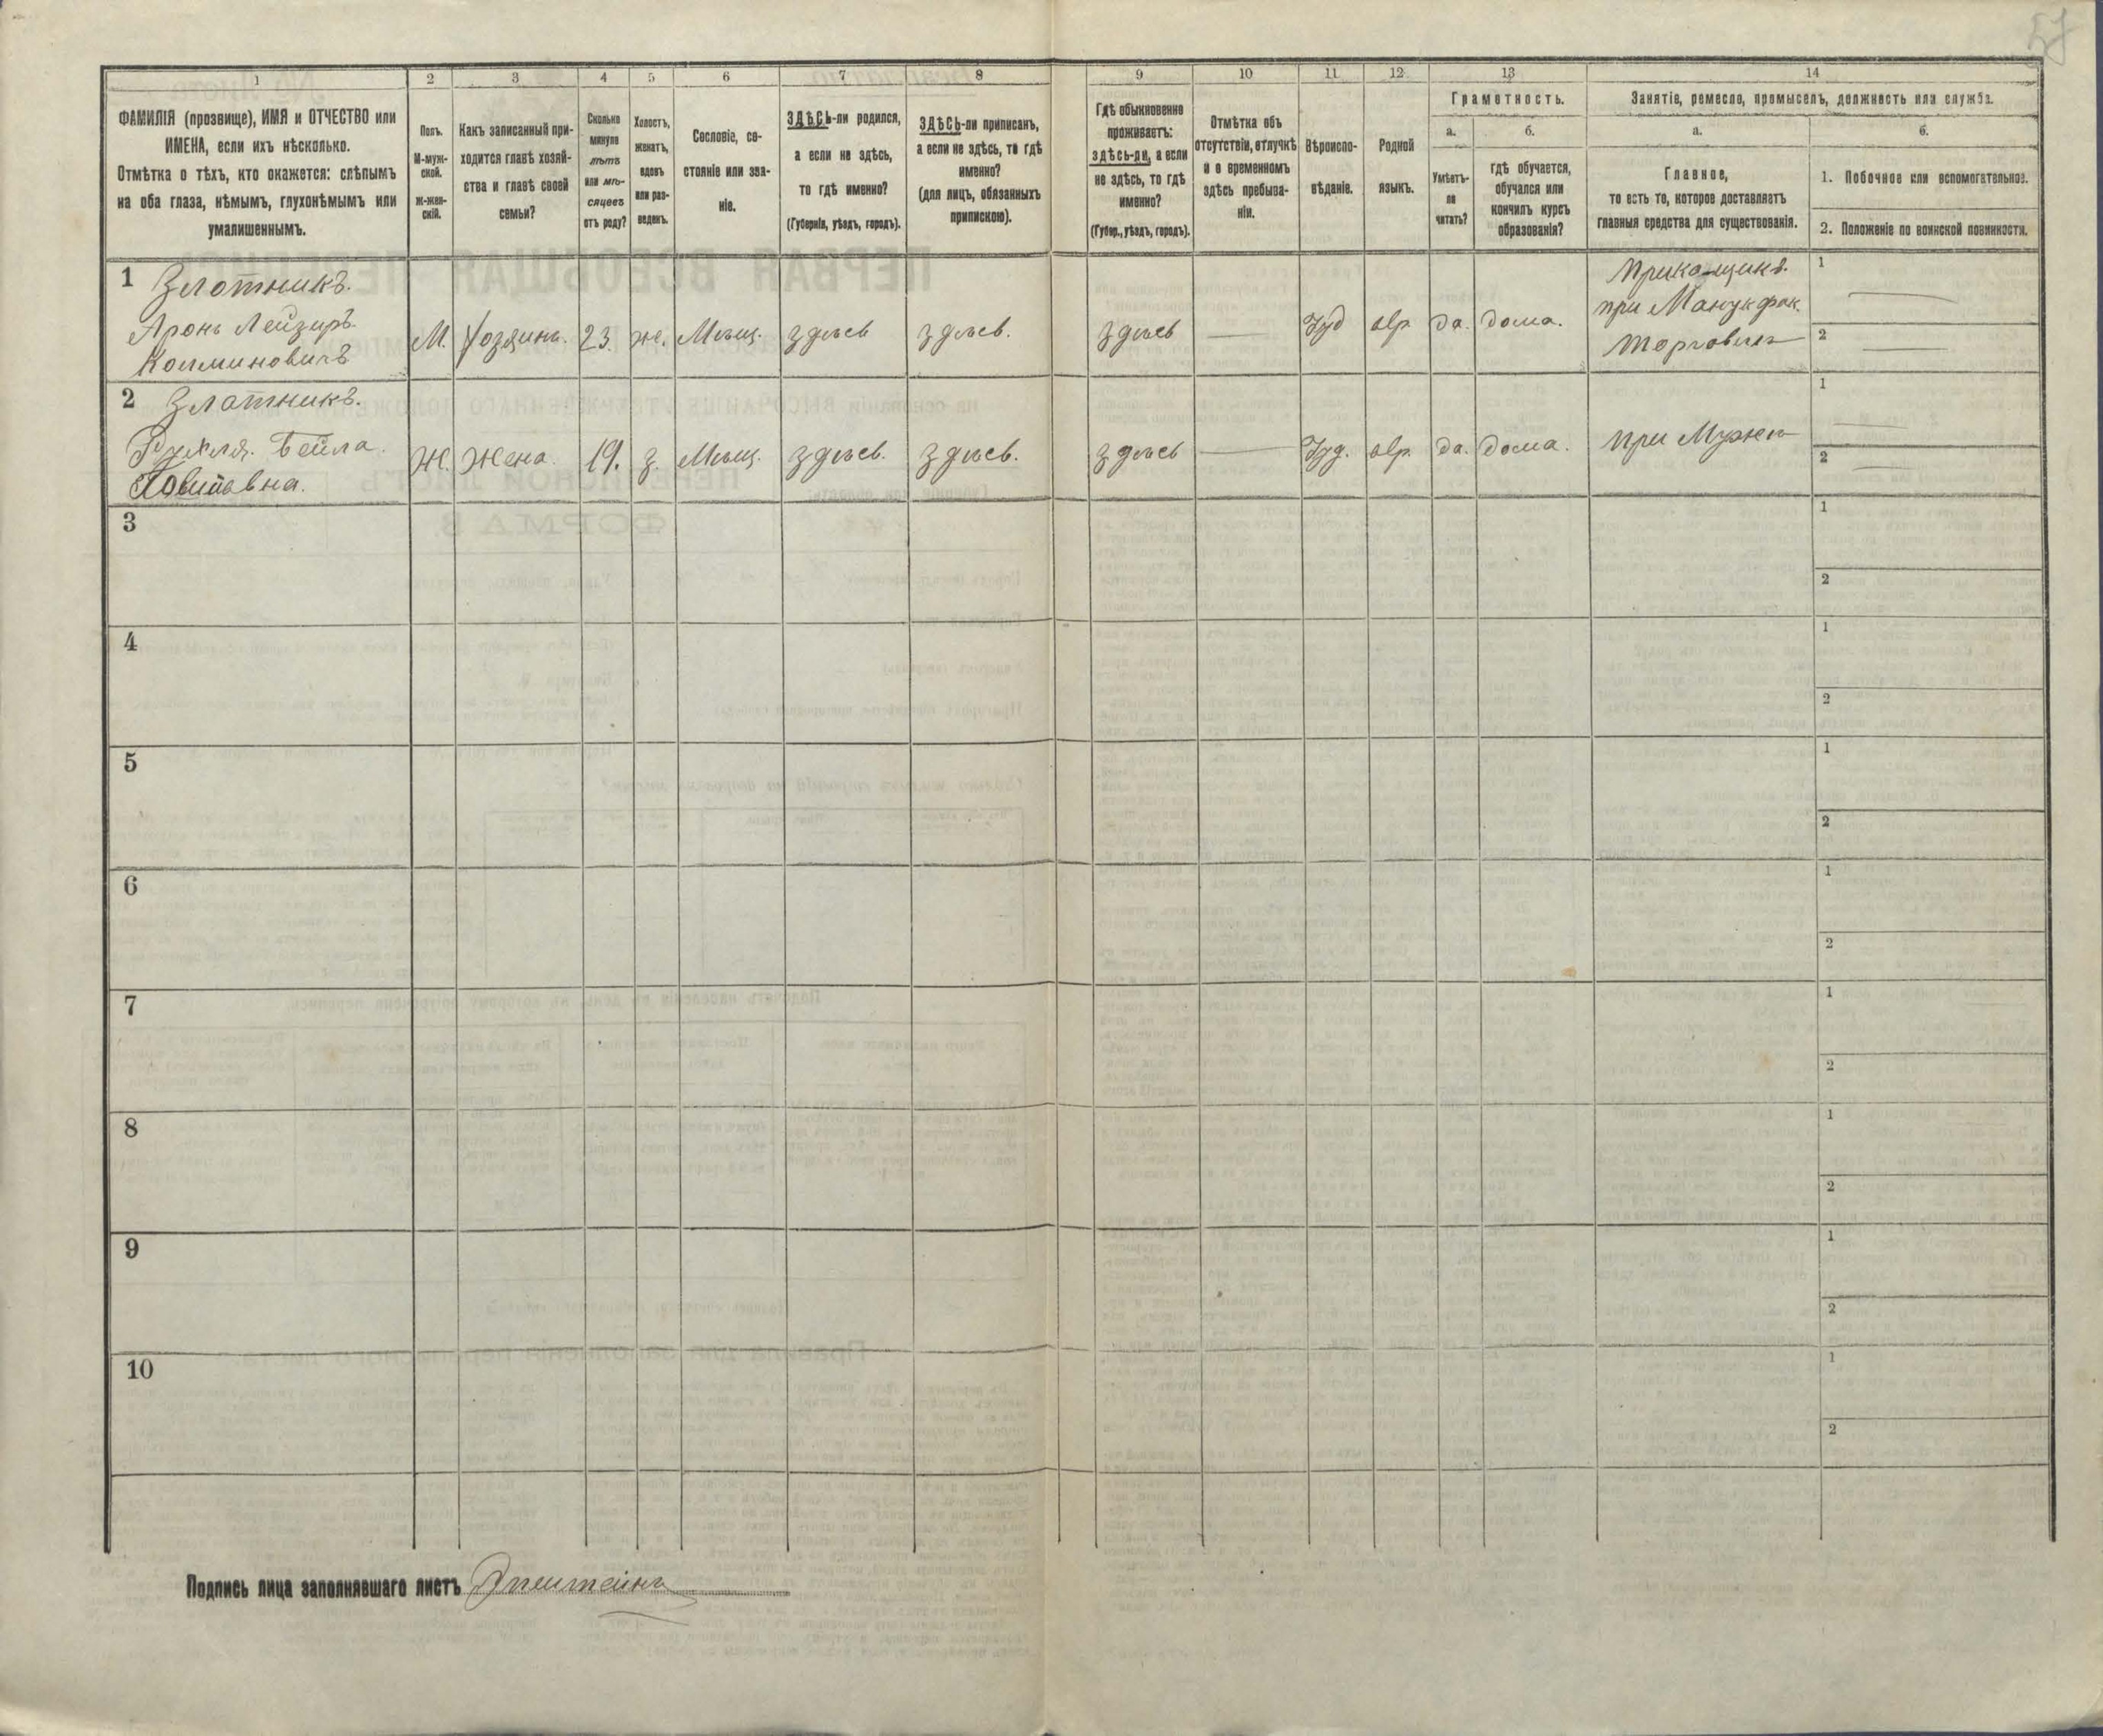 57
1 2 3 4 5 6 7 8 9 10 11 12 13 14
ФАМИЛІЯ (прозвище), ИМЯ и ОТЧЕСТВО или
ИМЕНА, если ихъ нѣсколько.
Отмѣтка о тѣхъ, кто окажется: слѣпымъ
на оба глаза, нѣмымъ, глухонѣмымъ или
умалишеннымъ.
Полъ.
М-муж-
ской.
Ж-жен-
скій.
Какъ записанный при-
ходится главѣ хозяй-
ства и главѣ своей
семьи?
Сколько
минуло
лѣтъ
или мѣ-
сяцевъ
отъ роду?
Холостъ,
женатъ,
вдовъ
или раз-
веденъ.
Сословіе, со-
стояніе или зва-
ніе.
ЗДѢСЬ-ли родился,
а если не здѣсь,
то гдѣ именно?
(Губернія, уѣздъ, городъ).
ЗДѢСЬ-ли приписанъ,
а если не здѣсь, то гдѣ
именно?
(для лицъ, обязанныхъ
припискою).
Гдѣ обыкновенно
проживаетъ:
здѣсь-ли, а если
не здѣсь, то гдѣ
именно?
(Губер., уѣздъ, городъ).
Отмѣтка объ
отсутствіи, отлучкѣ
и о временномъ
здѣсь пребыва-
ніи.
Вѣроиспо-
вѣданіе.
Родной
языкъ.
Грамотность.
а.
Умѣетъ-
ли
читать?
б.
гдѣ обучается,
обучался или
кончилъ курсъ
образованія?
Занятіе, ремесло, промыселъ, должность или служба.
а.
Главное,
то есть то, которое доставляетъ
главныя средства для существованія.
б.
1. Побочное или вспомогательное.
2. Положеніе по воинской повинности.
1 Злотникъ.
Аронъ Лейзеръ
Колмановичъ
М. Хозяинъ. 23. ж. Мѣщ. здѣсь здѣсь. здѣсь — Іуд евр да. дома.
Прикащикъ.
при Мануфак.
Торговлѣ
1 —
2 —
2 Злотникъ.
Рухля. Бейла.
Ж. Жена. 19. з. Мѣщ. здѣсь. здѣсь. здѣсь — Іуд. евр. да. дома. при Мужѣ
1 —
2 —
3 1
2
4 1
2
5 1
2
6 1
2
7 1
2
8 1
2
9 1
2
10 1
2
Подпись лица заполнявшаго листъ Эпштейнъ